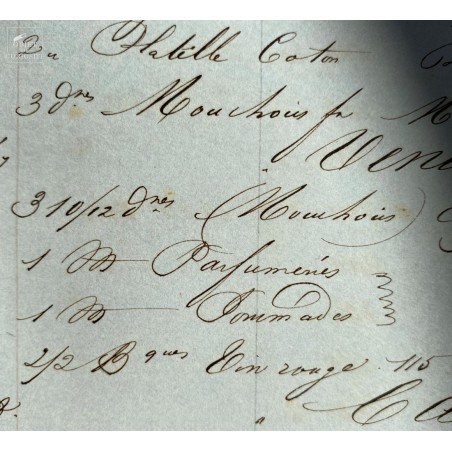 2 Platille Coton
3 dnes Mouchoirs fr M
Ven
3 10/12 dnes Mouchoirs
1 Parfumeries
1 Pommades
2/2 Bques Vin rouge 115
Ca